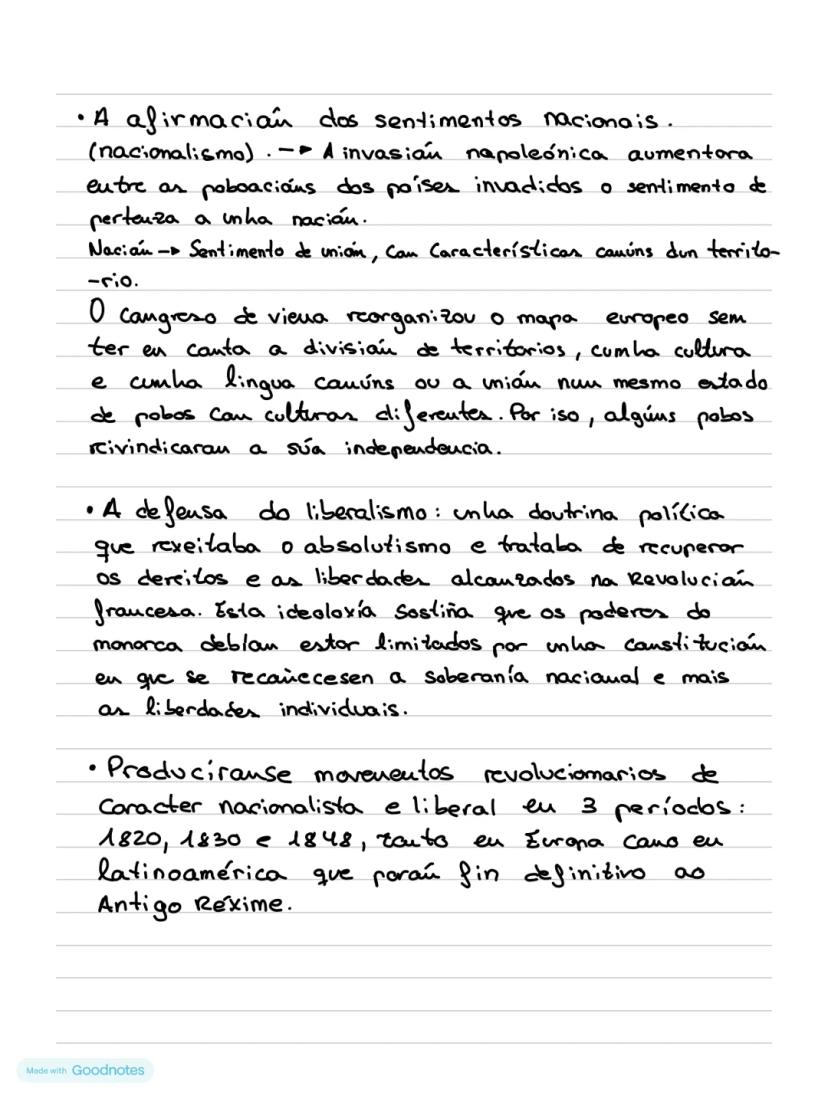 • A afirmación dos sentimentos nacionais.
(nacionalismo). -→ A invasión napoleónica aumentora
entre as poboacións dos países invadidos o sentimento de
pertenza a unha nación.
Nación → Sentimento de unión, con Características comúns dun territo-
-rio.
O Congreso de viena reorganizou o mapa europeo sem
ter en conta a división de territorios, cunha cultura
e cunha lingua comúns ou a unión nun mesmo estado
de pobos con culturas diferentes. Por iso, algúns pobos
reivindicaron a súa independencia.
• A defensa do liberalismo: unha doutrina política
que rexeitaba o absolutismo e trataba de recuperar
os dereitos e as liberdades alcanzados na Revolución
francesa. Esta ideoloxía sostiña que os poderes do
monarca debían estar limitados por unha constitución
en que se recoñecesen a soberanía nacional e mais
as liberdades individuais.
• Producíranse movementos revolucionarios de
Caracter nacionalista e liberal en 3 períodos:
1820, 1830 e 1848, tanto en Europa como en
latinoamérica que porán fin definitivo ao
Antigo Réxime.
Made with Goodnotes